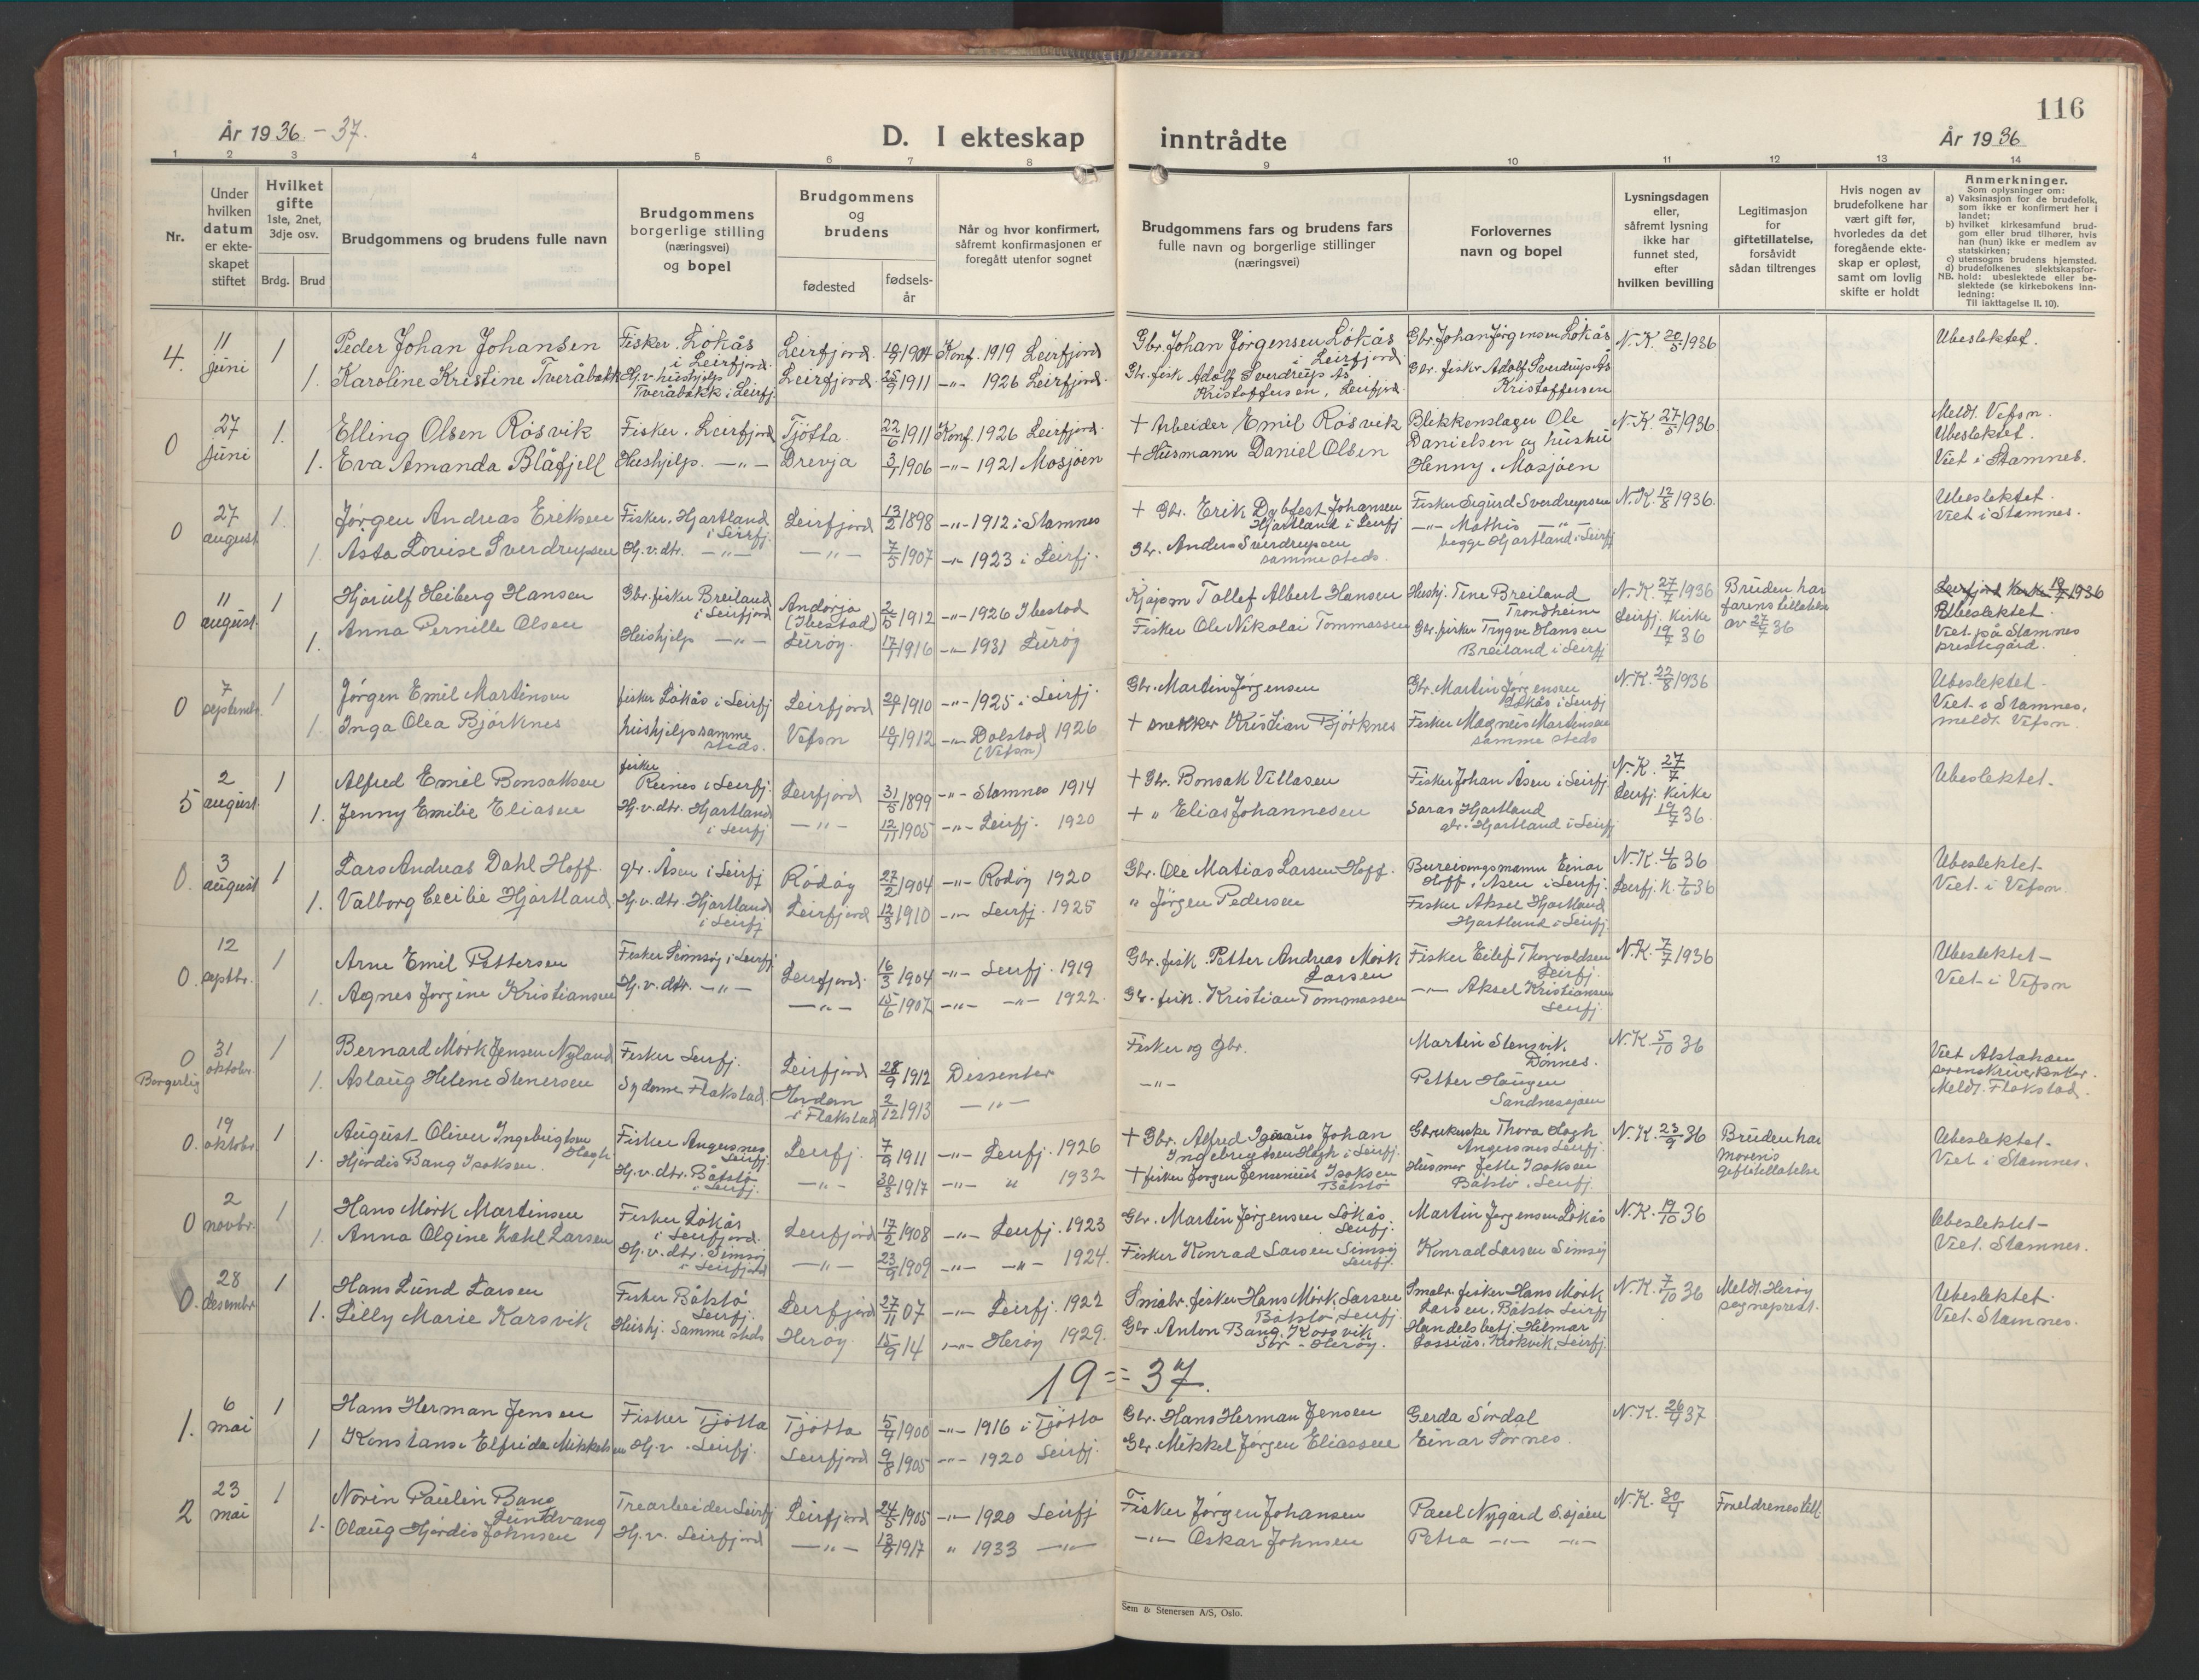 116
År 1936 - 37.
D. I ekteskap inntrådte
År 1936
1 2 3 4 5 6 7 8 9 10 11 12 13 14
Nr.
Under hvilken datum er ekte- skapet stiftet
Hvilket gifte 1ste, 2net, 3dje osv.
Brdg. Brud
Brudgommens og brudens fulle navn
Brudgommens borgerlige stilling (næringsvei) og bopel
Brudgommens og brudens
fødested
fødsels- år
Når og hvor konfirmert, såfremt konfirmasjonen er foregått utenfor sognet
Brudgommens fars og brudens fars fulle navn og borgerlige stillinger (næringsvei)
Forlovernes navn og bopel
Lysningsdagen eller, såfremt lysning ikke har funnet sted, efter hvilken bevilling
Legitimasjon for giftetillatelse, forsåvidt sådan tiltrenges
Hvis nogen av brudefolkene har vært gift før, hvorledes da det foregående ekte- skap er opløst, samt om lovlig skifte er holdt
Anmerkninger.
Som oplysninger om:
a) Vaksinasjon for de brudefolk, som ikke er konfirmert her i landet;
b) hvilket kirkesamfund brud- gom eller brud tilhører, hvis han (hun) ikke er medlem av statskirken;
c) utensogns brudens hjemsted.
d) brudefolkenes slektskapsfor-
NB. hold: ubeslektede eller be- slektede (se kirkebokens inn- ledning: Til iakttagelse II. 10).
4. 11 juni 1 Peder Johan Johansen Fisker. Løkås i Leirfjord. Leirfjord. 1904 Konf. 1919 Leirfjord Gbr. Johan Jørgensen Løkås i Leirfjord Gbr. Johan Jørgensen Løkås N.K. 20/5 1936 Ubeslektet.
1. Karoline Kristine Tveråbakk Hj.v. hushjelp Tveråbakk i Leirfj. Leirfjord. 25/9 1911 -"- 1926 Leirfjord. Gbr. fisk. Adolf Sverdrup As Kristoffersen, Leirfjord. Gbr. fisker Adolf Sverdrup As Kristoffersen
0 27 juni 1. Elling Olsen Røsvik Fisker. Leirfjord Tjøtta 22/6 1911 Konf. 1926 Leirfjord. + Arbeider Emil Røsvik Blikkenslager Ole Danielsen og hustru Henny, Mosjøen N.K. 27/5 1936 Meldt. Vefsn. Ubeslektet. Viet i Stamnes.
1. Eva Amanda Blåfjell Hushjelp. -"- Drevja 3/7 1906 -"- 1921 Mosjøen + Husmann Daniel Olsen
0 27 august 1. Jørgen Andreas Eriksen Fisker. Hjartland i Leirfj. Leirfjord 13/2 1898 -"- 1912 i Stamnes + Gbr. Erik Dybfest Johansen Hjartland i Leirfj Fisker Sigurd Sverdrupsen N.K. 12/8 1936. Ubeslektet. Viet i Stamnes.
1. Asta Lovise Sverdrupsen Hj.v.dtr. -"- -"- 7/5 1907 -"- 1923 i Leirfj. Gbr. Anders Sverdrupsen samme steds. -"- Mathis -"- begge Hjartland i Leirfj
0 11 august. 1 Hjørulf Heiberg Hansen Gbr. fisker Breiland i Leirfjord Andørja (Ibestad) 1912 -"- 1926 Ibestad Tollef Albert Hansen Hushj. Tine Breiland Trondheim N.K. 27/7 1936 Leirfj. Kirke 19/7 36 Bruden har farens tillatelse av 27/7 36 Leirfjord Kirke 19/7 1936 Ubeslektet. Viet på Stamnes prestegård.
1. Anna Pernille Olsen Hushjelp -"- Lurøy. 17/1 1916 -"- 1931 Lurøy Fisker Ole Nikolai Tommassen Gbr. fisker Trygve Hansen Breiland i Leirfj
0 7 septembr. 1 Jørgen Emil Martinsen fisker Løkås i Leirfj Leirfjord 1910 -"- 1925 i Leirfj. Gbr. Martin Jørgensen Gbr. Martin Jørgensen Løkås i Leirfj N.K. 22/8 1936 Ubeslektet. Viet i Stamnes, meldt. Vefsn.
1. Inga Olea Bjørknes hushjelp samme steds. Vefsn 1912 -"- Dolstad 1926 (Vefsn) + snekker Kristian Bjørknes Fisker Magnus Martinsen samme steds
5 2 august. 1 Alfred Emil Bonsaksen fisker Reines i Leirfj. Leirfjord 31/5 1899 -"- Stamnes 1914 + Gbr. Bonsak Villasen Fisker Johan Åsen i Leirfj. N.K. 27/7 Leirfj. Kirke 19/7 36. Ubeslektet.
1. Jenny Emilie Eliasen Hj.v.dtr. Hjartland i Leirfj -"- 12/11 1905 -"- Leirfj. 1920 + " Elias Johannesen Saras Hjartland gbr. Hjartland i Leirfj
0. 3 august 1 Lars Andreas Dahl Hoff. gbr. Åsen i Leirfj Rødøy 27/2 1904 -"- Rødøy 1920 Gbr. Ole Matias Larsen Hoff. Bureisingsmann Einar Hoff i Åsen i Leirfj. N.K. 4/6 36 Leirfj. K. 7/6 36 Ubeslektet. Viet i Vefsn
1. Valborg Cecilie Hjartland Hj.v.dtr. Hjartland i Leirfj Leirfjord 12/3 1910 -"- Leirfj. 1925 " Jørgen Pedersen Fisker Aksel Hjartland Hjartland i Leirfj.
0. 12 septbr. 1 Arne Emil Pettersen Fisker Simsøy i Leirfj Leirfjord. 16/3 1904 -"- Leirfj. 1919 Gbr. fisk. Petter Andreas Mørk Larsen Fisker Eilef Thorvaldsen Leirfj. N.K. 7/7 1936 Ubeslektet- Viet i Vefsn
1. Agnes Jørgine Kristiansen Hj.v.dtr. -"- -"- 15/6 1902 -"- -"- 1922. Gbr. fisk. Kristian Tommassen -"- Aksel Kristiansen Leirfj.
0 Borgerlig 31 oktobr. 1 Bernard Mørk Jensen Nyland Fisker Leirfj. Leirfjord 28/9 1912 Dissenter Fisker og Gbr. Martin Stensvik, Dønnes. N.K. 5/10 36 Viet Alstahaug sorenskriverkontor. Meldt. Flakstad.
1. Aslaug Helene Stenersen Sydame Flakstad. i Flakstad 2/12 1913 -"- -"- Petter Haugen Sandnessjøen
0. 19 oktobr. 1 August Oliver Ingebrigtsen Hagh Fisker Angersnes Leirfj. Leirfj. 7/9 1911 -"- Leirfj. 1926 + Gbr. Alfred Johan Ingebrigtsen Hagh i Leirfj. Gbrukerske Thora Hagh Angersnes Leirfj. N.K. 23/9 36 Bruden har morens giftetillatelse Ubeslektet- Viet i Stamnes.
1. Hjørdis Bang Isaksen. Hj.v.dtr. Båtstø i Leirfj. -"- 20/3 1917 -"- " 1932 + fisker Jørgen Jensenius Isaksen Båtstø Husmor Jette Isaksen Båtstø, Leirfj.
0 2 novbr. 1 Hans Mørk Martinsen Fisker Løkås i Leirfjord. Leirfjord 17/2 1908 -"- Leirfj. 1923 Gbr. Martin Jørgensen Løkås Leirfj. Martin Jørgensen Løkås N.K. 19/10 36 Ubeslektet- Viet. Stamnes.
1. Anna Olgine Zahl Larsen Hj.v.dtr. Simsøy i Leirfjord -"- 23/9 1909 -"- -"- 1924. Fisker Konrad Larsen Simsøy Leirfj. Konrad Larsen Simsøy
0. 28 desembr. 1 Hans Lund Larsen Fisker Båtstø Leirfj. Leirfjord 27/11 07 -"- Leirfj. 1922 Småbr. fisker Hans Mørk Larsen Båtstø, Leirfj Småbr. fisker Hans Mørk Larsen, Båtstø Leirfj N.K. 7/10 36 Meldt. Herøy sogneprest. Ubeslektet. Viet. Stamnes.
1. Lilly Marie Karsvik Hushj. Samme steds Herøy 15/9 14 -"- Herøy 1929. Gbr. Anton Bang Karsvik Sbr - Herøy. Handelsbetj. Hilmar Krokvik, Leirfj.
19 = 37.
1. 6 mai 1 Hans Herman Jensen Fisker Tjøtta Tjøtta 1900 -"- 1916 i Tjøtta Gbr. Hans Herman Jensen Gerda Sørdal N.K. 26/4 37
1 Konstanse Elfrida Mikkelsen Hj.v. Leirfj. Leirfjord 9/8 1905 -"- 1920 Leirfj. Gbr. Mikkel Jørgen Eliassen Einar Tornes.
2 23 mai 1 Norin Paulin Bang Sundvang Trearbeider Leirfj Leirfjord 24/5 1905 -"- 1920 Leirfj Fisker Jørgen Johansen Paul Nygård S.sjøen N.K. 30/4 Foreldrenes till.
1. Olaug Hjørdis Johnsen Hj.v. Leirfjord -"- 13/9 1917 " 1933 -"- -"- Oskar Johnsen Petra -"- -"-
Sem & Stenersen A/S, Oslo.